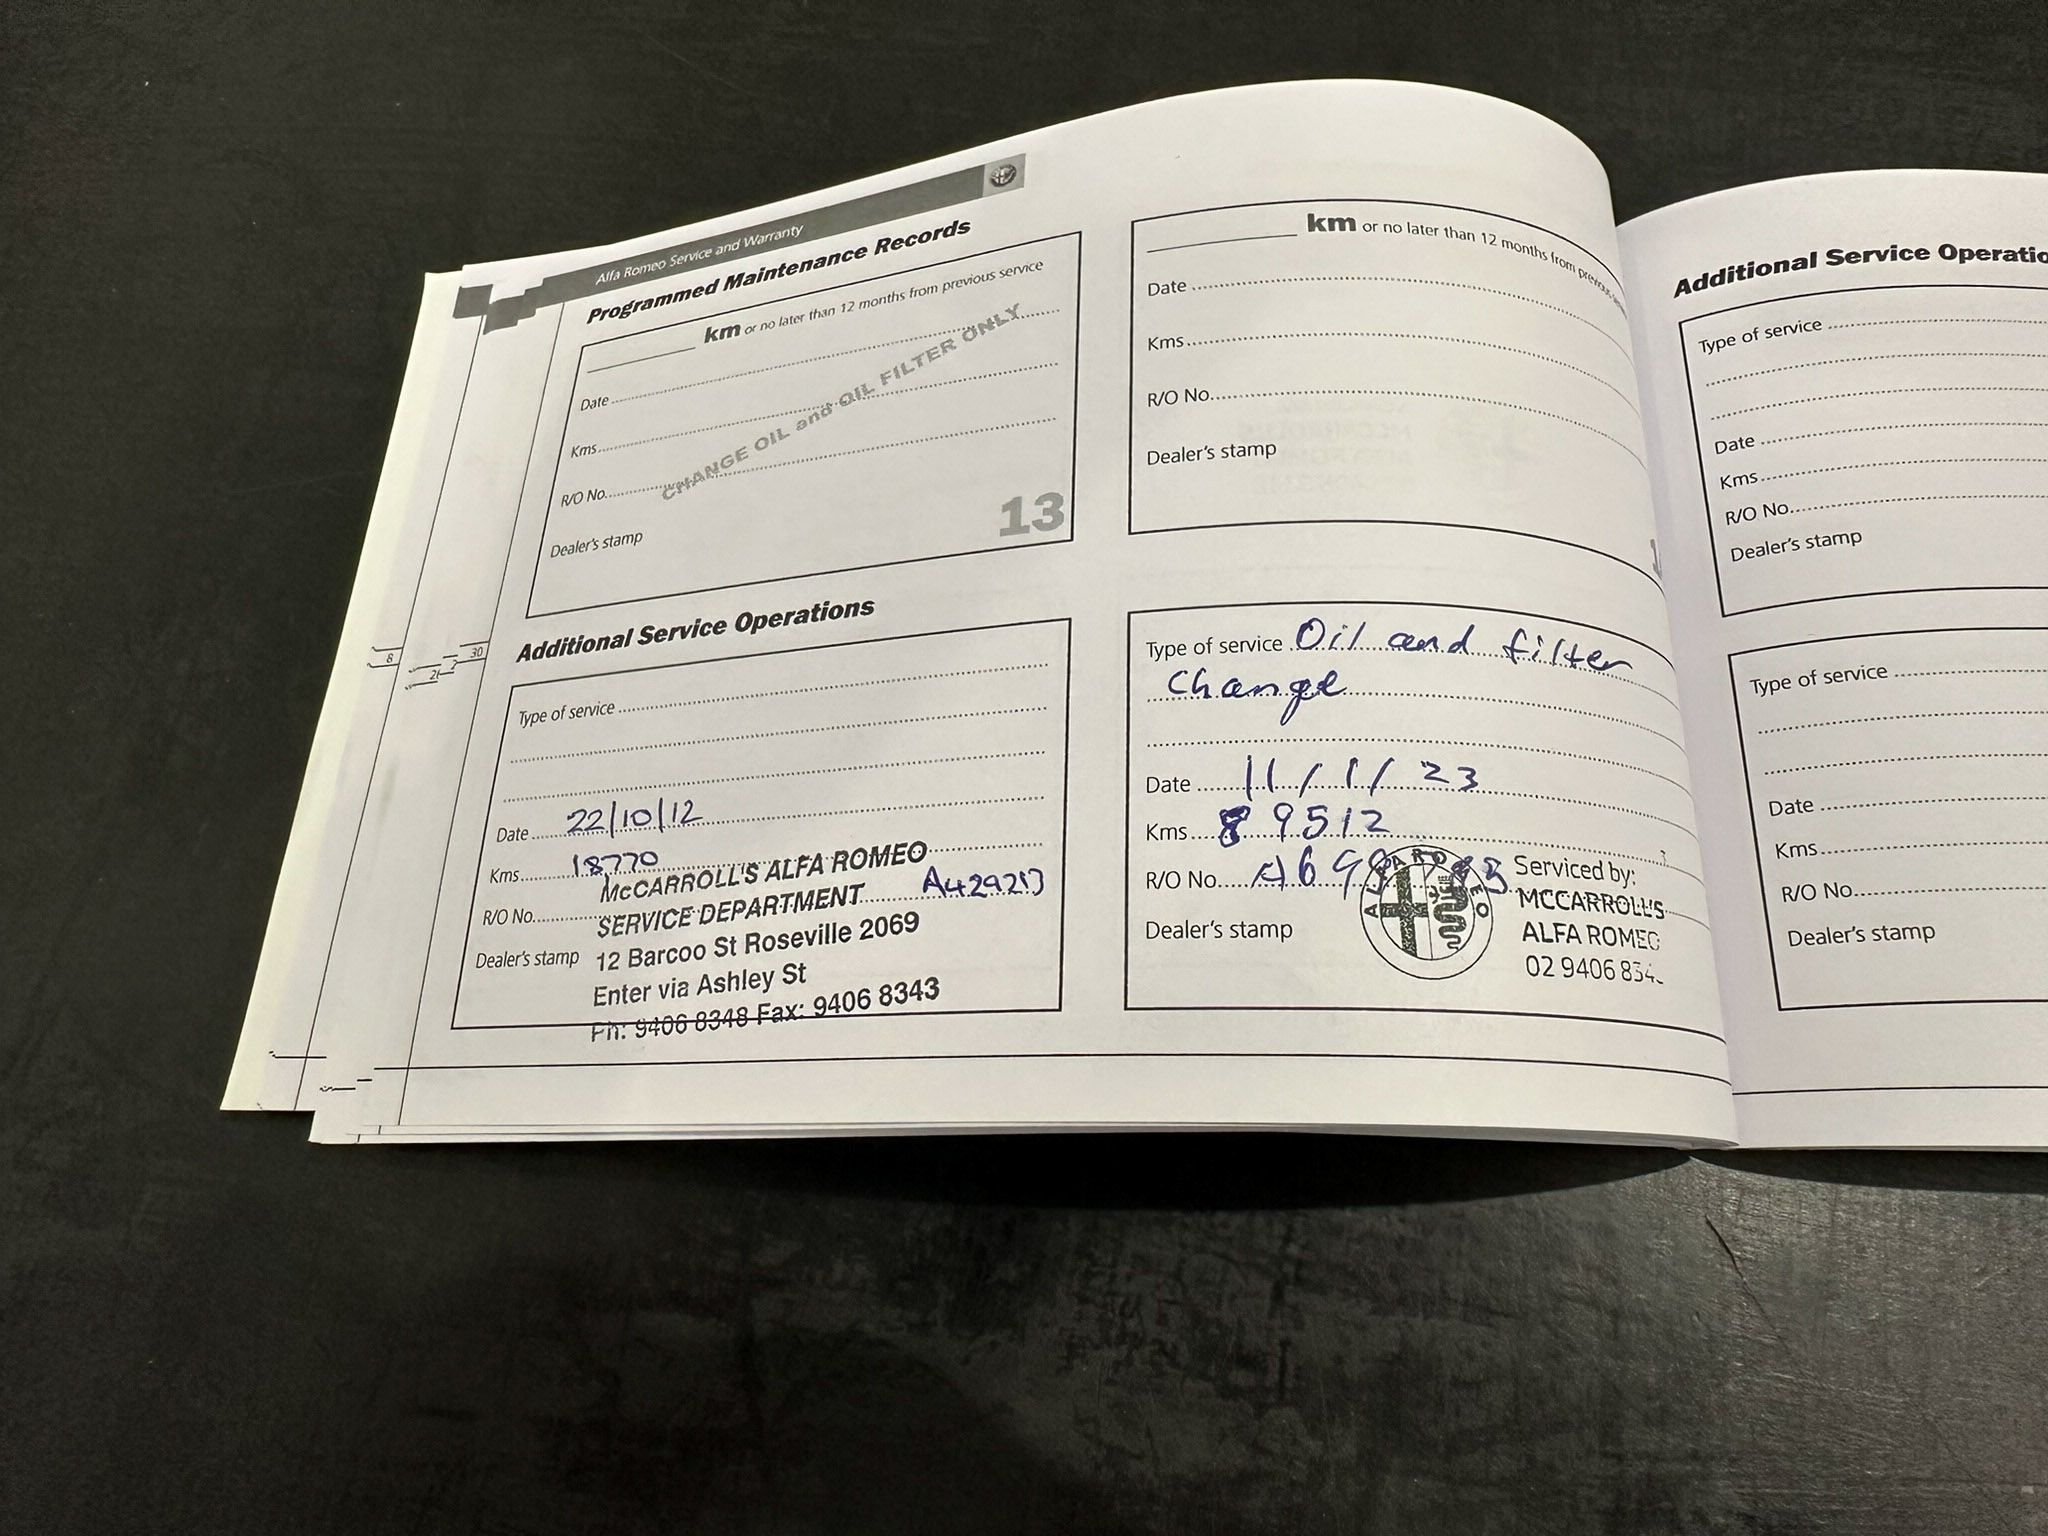 Alfa Romeo Service and Warranty
Programmed Maintenance Records
km or no later than 12 months from previous service
Date
Kms
R/O No.
Dealer's stamp
CHANGE OIL and OIL FILTER ONLY
13
km or no later than 12 months from previous
Date
Kms
R/O No.
Dealer's stamp
Additional Service Operations
Type of service
Date 22/10/12
Kms 18770
R/O No. A429213
Dealer's stamp
McCARROLL'S ALFA ROMEO
SERVICE DEPARTMENT
12 Barcoo St Roseville 2069
Enter via Ashley St
Ph: 9406 8348 Fax: 9406 8343
Type of service Oil and filter
change
Date 11/1/23
Kms 89512
R/O No.
Dealer's stamp
ALFA ROMEO
Serviced by:
MCCARROLL'S
ALFA ROMEO
02 9406
8
2
30
Additional Service
Type of service
Date
Kms
R/O No.
Dealer's stamp
Type of service
Date
Kms
R/O No.
Dealer's stamp